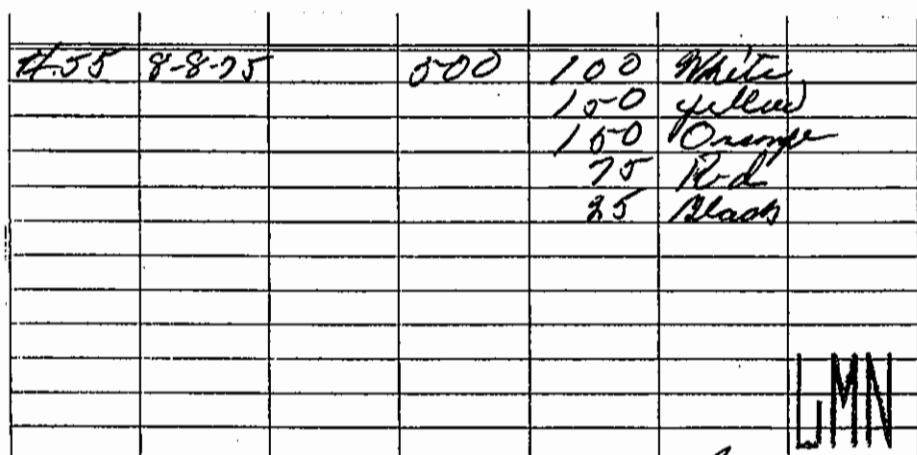 14.55 8-8-75 500 100 White
150 yellow
150 Orange
75 Red
25 Black
LMN